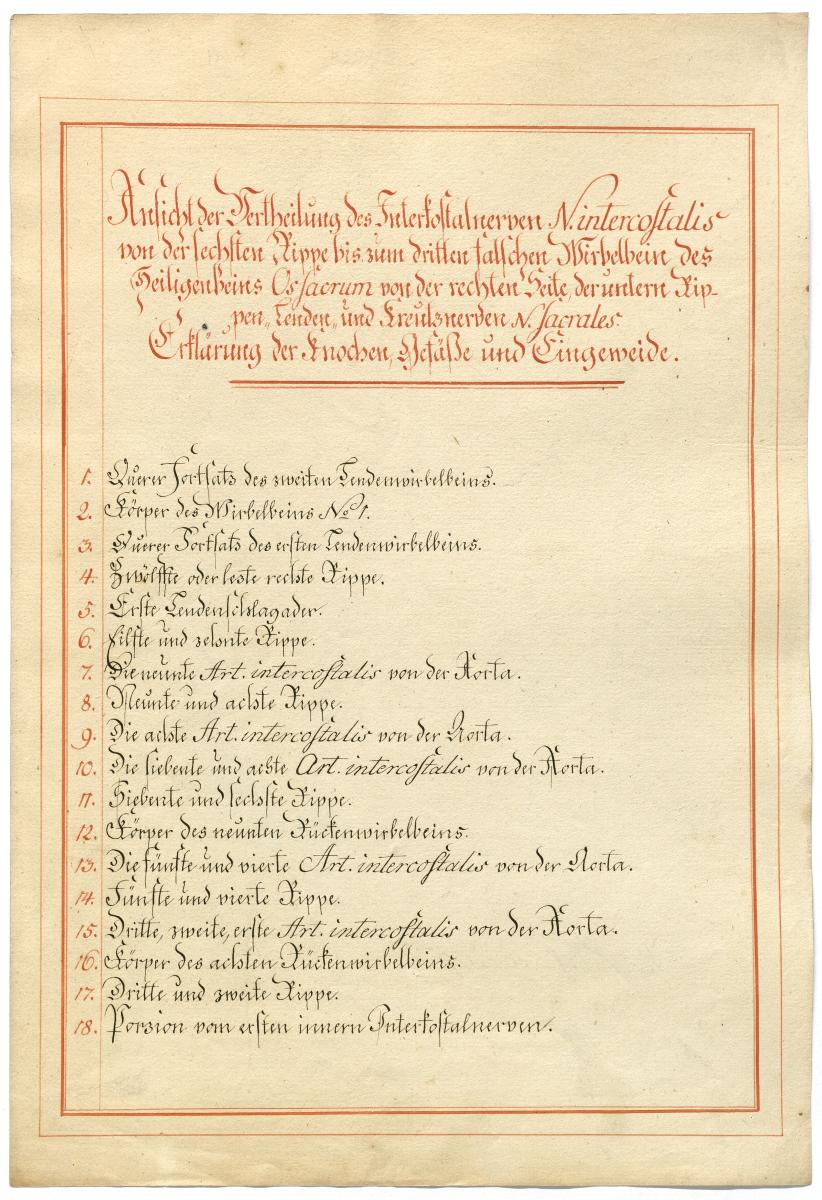 Ansicht der Vertheilung des Interkostalnerven N. intercostalis
von der sechsten Rippe bis zum dritten falschen Wirbelbein des
Heiligenbeins Os sacrum von der rechten Seite, der untern Rip-
pen„ Lenden„ und Kreutznerven N. sacrales.
Erklärung der Knochen, Gefäße und Eingeweide.
1. Querer Fortsatz des zweiten Lendenwirbelbeins.
2. Körper des Wirbelbeins No 1.
3. Querer Fortsatz des ersten Lendenwirbelbeins.
4. Zwölffte oder lezte rechte Rippe.
5. Erste Lendenschlagader.
6. Eilfte und zehnte Rippe.
7. Die neunte Art. intercostalis von der Aorta.
8. Neunte und achte Rippe.
9. Die achte Art. intercostalis von der Aorta.
10. Die siebente und achte Art. intercostalis von der Aorta.
11. Siebente und sechste Rippe.
12. Körper des neunten Rückenwirbelbeins.
13. Die fünfte und vierte Art. intercostalis von der Aorta.
14. Fünfte und vierte Rippe.
15. Dritte, zweite, erste Art. intercostalis von der Aorta.
16. Körper des achten Rückenwirbelbeins.
17. Dritte und zweite Rippe.
18. Porzion vom ersten innern Interkostalnerven.